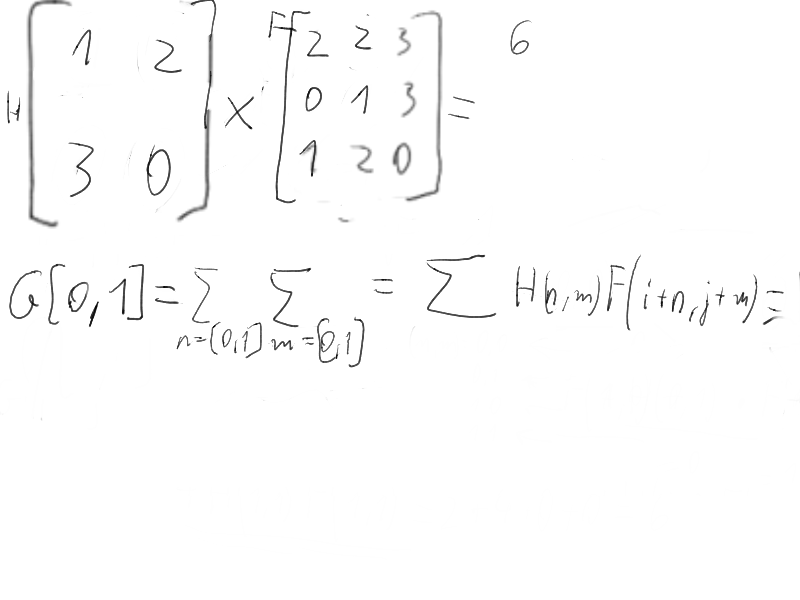 H [1 2 3 0] × F [2 2 3 0 1 3 1 2 0] = 6
G[0,1] = ∑ n=[0,1] ∑ m=[0,1] = ∑ H(n,m)F(i+n,j+m) =